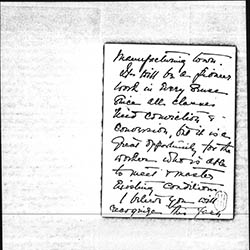 Manufacturing town.
It will be a pioneer
work in every sense
since all classes
need conviction &
conversion, but it is a
great opportunity for the
worker who is able
to meet & master
existing conditions.
I believe you will
recognize this fact